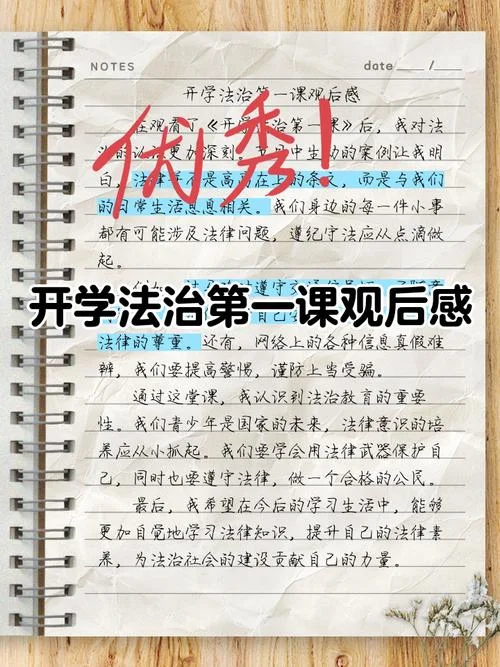 NOTES date
开学法治第一课观后感
在观看了《开学法治第一课》后，我对法
治的认识更加深刻。节目中生动的案例让我明
白，法律并不是高高在上的条文，而是与我们
的日常生活息息相关。我们身边的每一件小事
都有可能涉及法律问题，遵纪守法应从点滴做
起。
优秀！
开学法治第一课观后感
法律的尊重。还有，网络上的各种信息真假难
辨，我们要提高警惕，谨防上当受骗。
通过这堂课，我认识到法治教育的重要
性。我们青少年是国家的未来，法律意识的培
养应从小抓起。我们要学会用法律武器保护自
己，同时也要遵守法律，做一个合格的公民。
最后，我希望在今后的学习生活中，能够
更加自觉地学习法律知识，提升自己的法律素
养，为法治社会的建设贡献自己的力量。